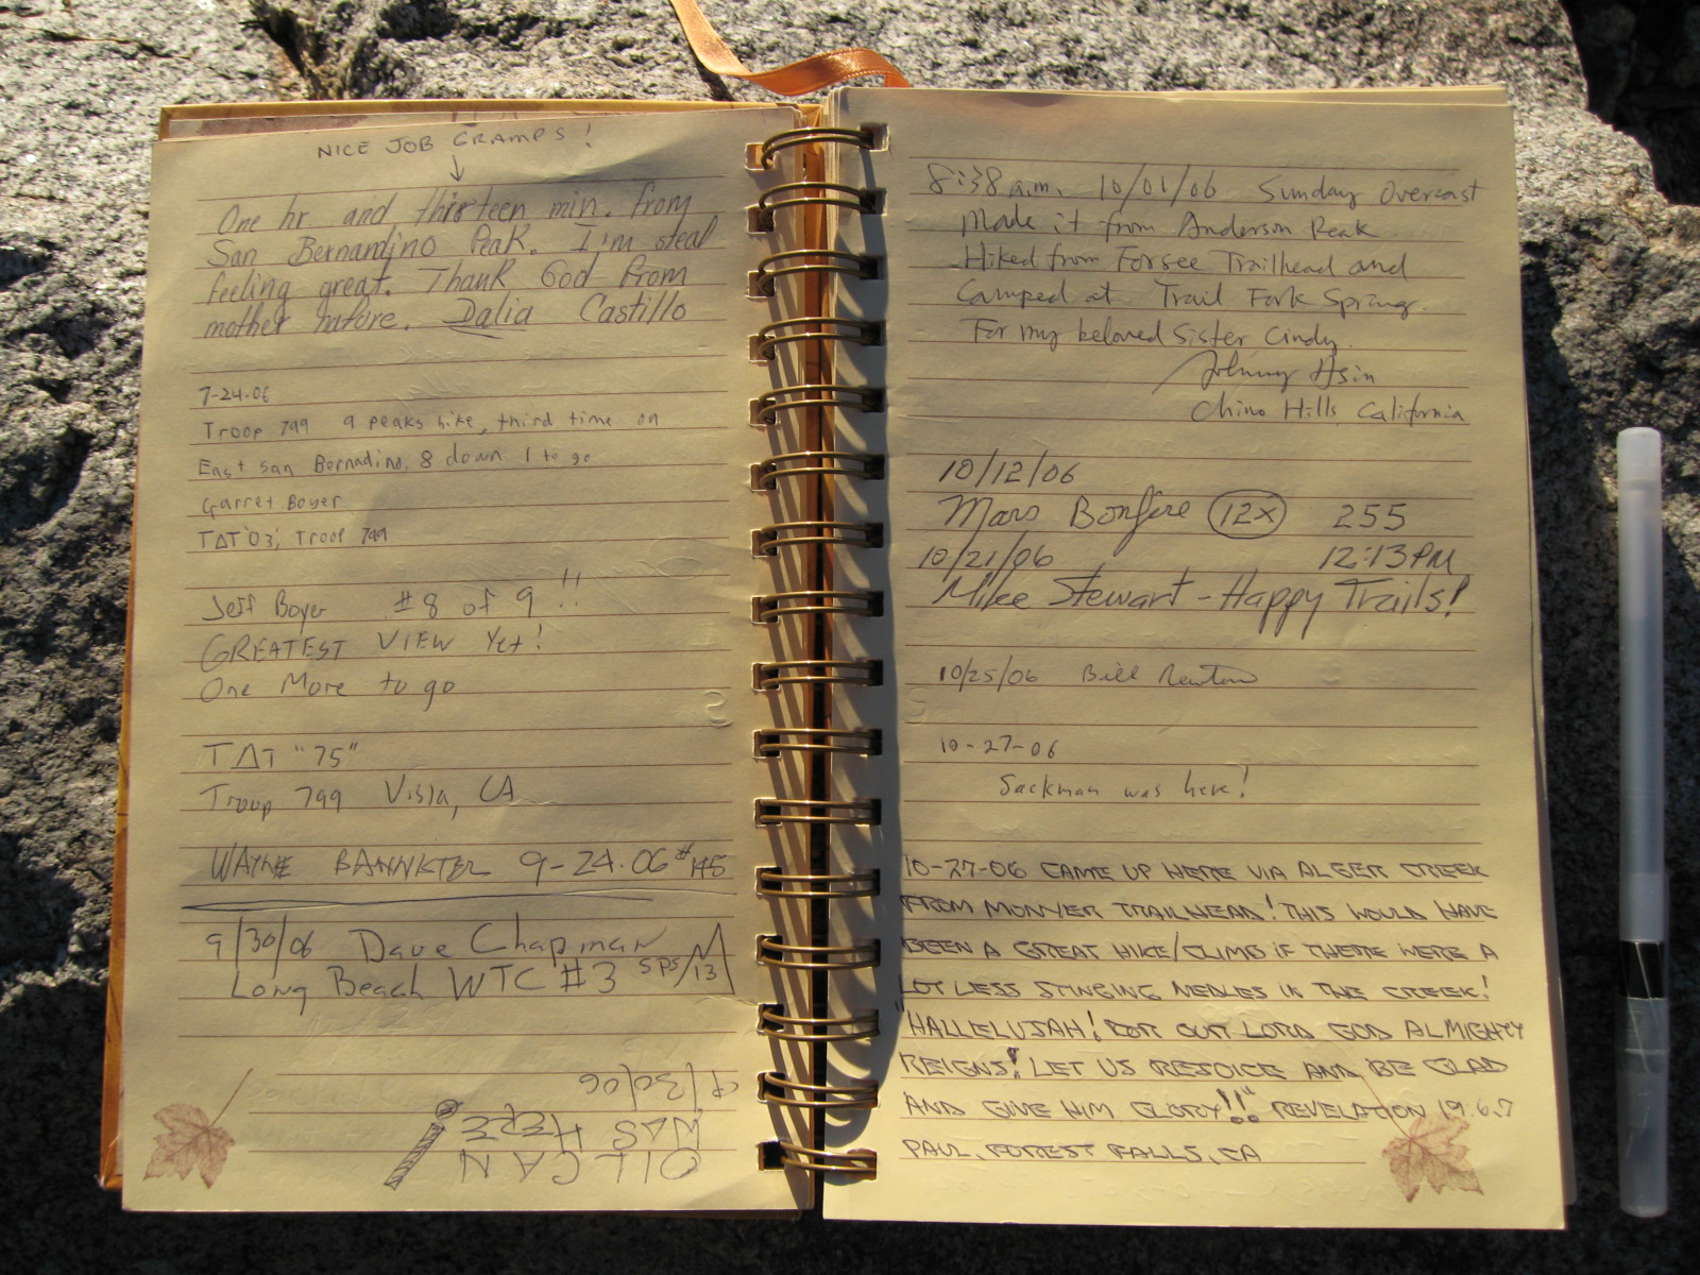 NICE JOB GRAMPS!
One hr and thirteen min. from
San Bernardino Peak. I'm steal
feeling great. Thank God from
mother nature. Dalia Castillo
7-24-06
Troop 799 9 peaks hike, third time on
East San Bernadino, 8 down 1 to go
Garret Boyer
TΔT '03, Troop 799
Jeff Boyer #8 of 9!!
GREATEST VIEW Yet!
One More to go
TΔT "75"
Troop 799 Vista, CA
WAYNE BANNISTER 9-24-06 #145
9/30/06 Dave Chapman
Long Beach WTC #3 SPS/M13
OIL CAN
WAS HERE!
9/30/06
8:38 a.m. 10/01/06 Sunday Overcast
Made it from Anderson Peak
Hiked from Forsee Trailhead and
Camped at Trail Fork Spring.
For my beloved Sister Cindy.
Johnny Hsin
Chino Hills, California
10/12/06
Mars Bonfire 12x 255
10/21/06 12:13 PM
Mike Stewart - Happy Trails!
10/25/06 Bill
10-27-06
Sackman was here!
10-27-06 CAME UP HERE VIA ALGER CREEK
FROM MOMYER TRAILHEAD! THIS WOULD HAVE
BEEN A GREAT HIKE/CLIMB IF THERE WERE A
LOT LESS STINGING NEDLES IN THE CREEK!
"HALLELUJAH! FOR OUR LORD GOD ALMIGHTY
REIGNS! LET US REJOICE AND BE GLAD
AND GIVE HIM GLORY!!" REVELATION 19.6,7
PAUL, FOREST FALLS, CA